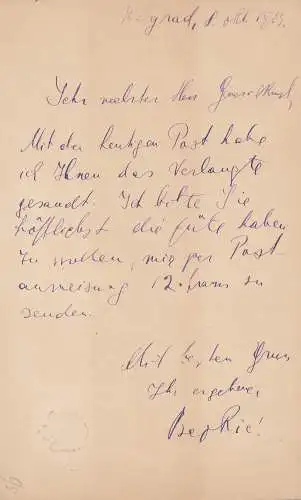 8. Okt. 19
Sehr Herr
Mit der heutigen Post habe
ich Ihnen das Verlangte
gesandt. Ich bitte Sie
höfflichst die güte haben
zu wollen, mir per Post
anweisung 12. frams zu
senden.
Mit besten Gruss
Ihr ergebener